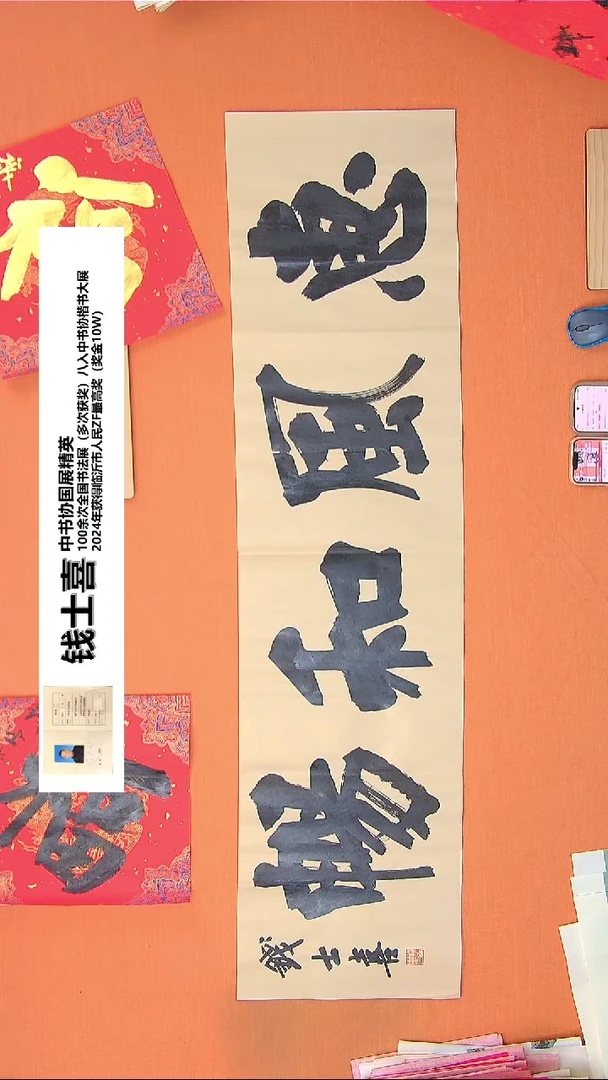 惠風和暢
錢士喜
钱士喜
中书协国展精英
100余次全国书法展（多次获奖）八入中书协楷书大展
2024年获得临沂市人民ZF最高奖（奖金10W）